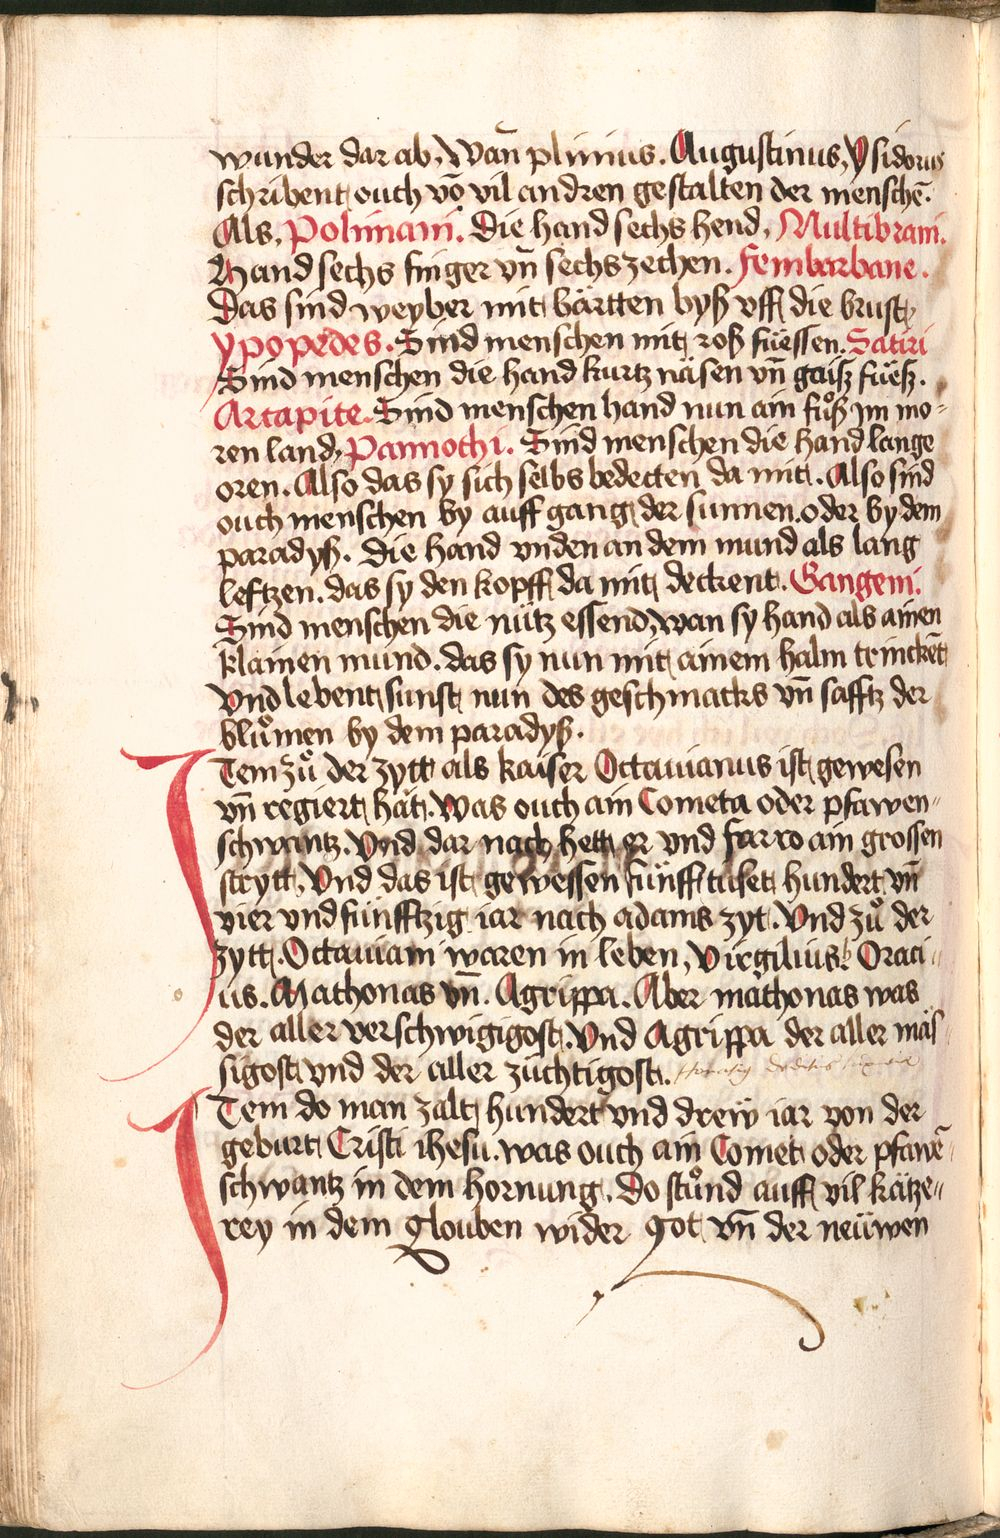 wunder dar ab, Wan̄ plinius. Augustinus, Ysidorus
schribent ouch vō vil andren gestalten der menschē.
Als, Polimani. Die hand sechs hend, Multibrani.
Hand sechs finger vn̄ sechs zechen. Fembarbane.
Das sind weyber mit bärtten byß vff die brust,
ypopedes. Sind menschen mit roß füessen. Satiri
Sind menschen die hand kurtz näsen vn̄ gaiß füeß.
Artapite. Sind menschen hand nun ain fůß im mo-
ren land, Pannothi. Sind menschen die hand lange
oren. Also das sy sich selbs bedecten da mit. Also sind
ouch menschen by auff gang der sunnen. oder by dem
paradyß. Die hand vnden an dem mund als lang
leftzen. das sy den kopff da mit deckent. Gangeni.
Sind menschen die nütz essend, wan sy hand als ainen
klainen mund. das sy nun mit ainem halm trinckēt
Vnd lebent sunst nun des geschmacks vn̄ safftz der
blůmen by dem paradyß.
ITem zů der zytt als kaiser Octauianus ist gewesen
vn̄ regiert hät. Was ouch ain Cometa oder pfawen-
schwantz. Vnd dar nach hett er vnd farro ain grossen
strytt, Vnd das ist gewessen fünff tuset hundert vn̄
vier vnd fünfftzig iar nach adams zyt. Vnd zů der
zytt. Octauiani waren in leben, Virgilius. Oraci-
us. Mathonas vn̄. Agrippa. Aber mathonas was
der aller verschwigigost. Vnd Agrippa der aller mäs-
sigost vnd der aller züchtigost.
ITem do man zalt hundert vnd dreẅ iar von der
geburt Cristi ihesu. was ouch ain Comet oder pfawē
schwantz in dem hornung. Do stůnd auff vil kätze-
rey in dem glouben wider got vn̄ der neüwen